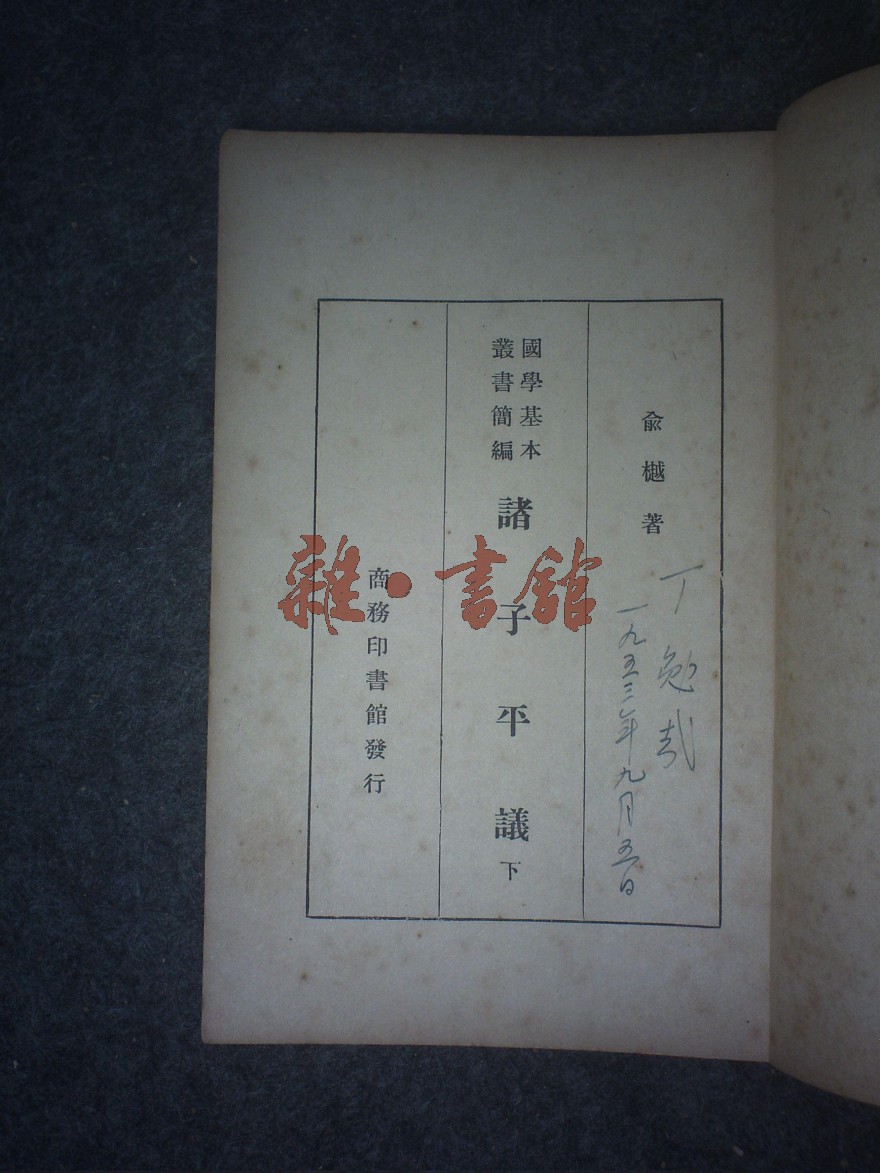 俞樾著
丁勉哉
一九五三年九月五日
國學基本
叢書簡編
諸子平議下
商務印書館發行
雜·書館